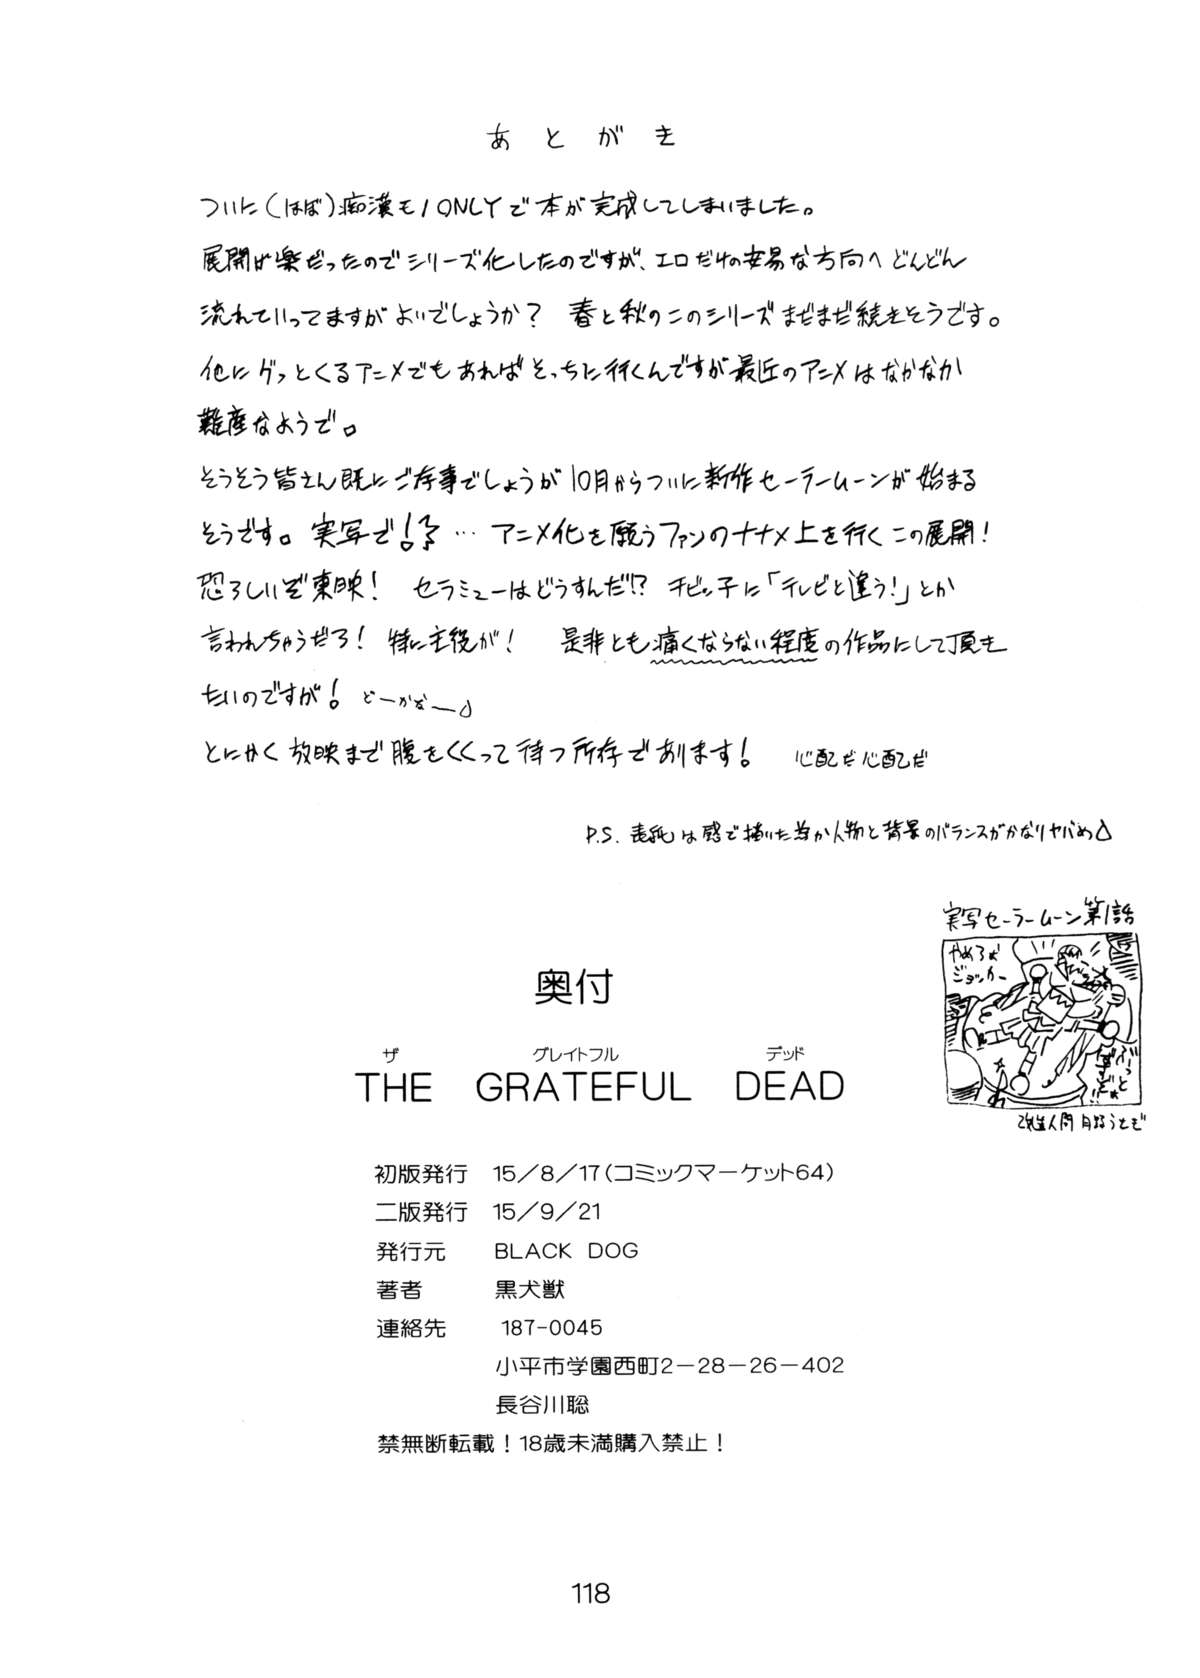 あとがき
ついに(ほぼ)痴漢モノONLYで本が完成してしまいました。
展開が楽だったのでシリーズ化したのですが、エロだけの安易な方向へどんどん
流れていってますがよいでしょうか? 春と秋のこのシリーズまだまだ続きそうです。
他にグッとくるアニメでもあればそっちに行くんですが最近のアニメはなかなか
難産なようで。
そうそう皆さん既にご存事でしょうが10月からついに新作セーラームーンが始まる
そうです。実写で!? … アニメ化を願うファンのナナメ上を行くこの展開!
恐ろしいぞ東映! セラミューはどうすんだ!? チビッ子に「テレビと違う!」とか
言われちゃうだろ! 特に主役が! 是非とも痛くならない程度の作品にして頂き
たいのですが! どーかなー
とにかく放映まで腹をくくって待つ所存であります! 心配だ心配だ
P.S. 表紙は感で描いた為か人物と背景のバランスがかなりヤバめ
実写セーラームーン第1話
やめろぉ
ジョッカー
改造人間 月野うさぎ
奥付
ザ グレイトフル デッド
THE GRATEFUL DEAD
初版発行 15/8/17(コミックマーケット64)
二版発行 15/9/21
発行元 BLACK DOG
著者 黒犬獣
連絡先 187-0045
小平市学園西町2-28-26-402
長谷川聡
禁無断転載!18歳未満購入禁止!
118